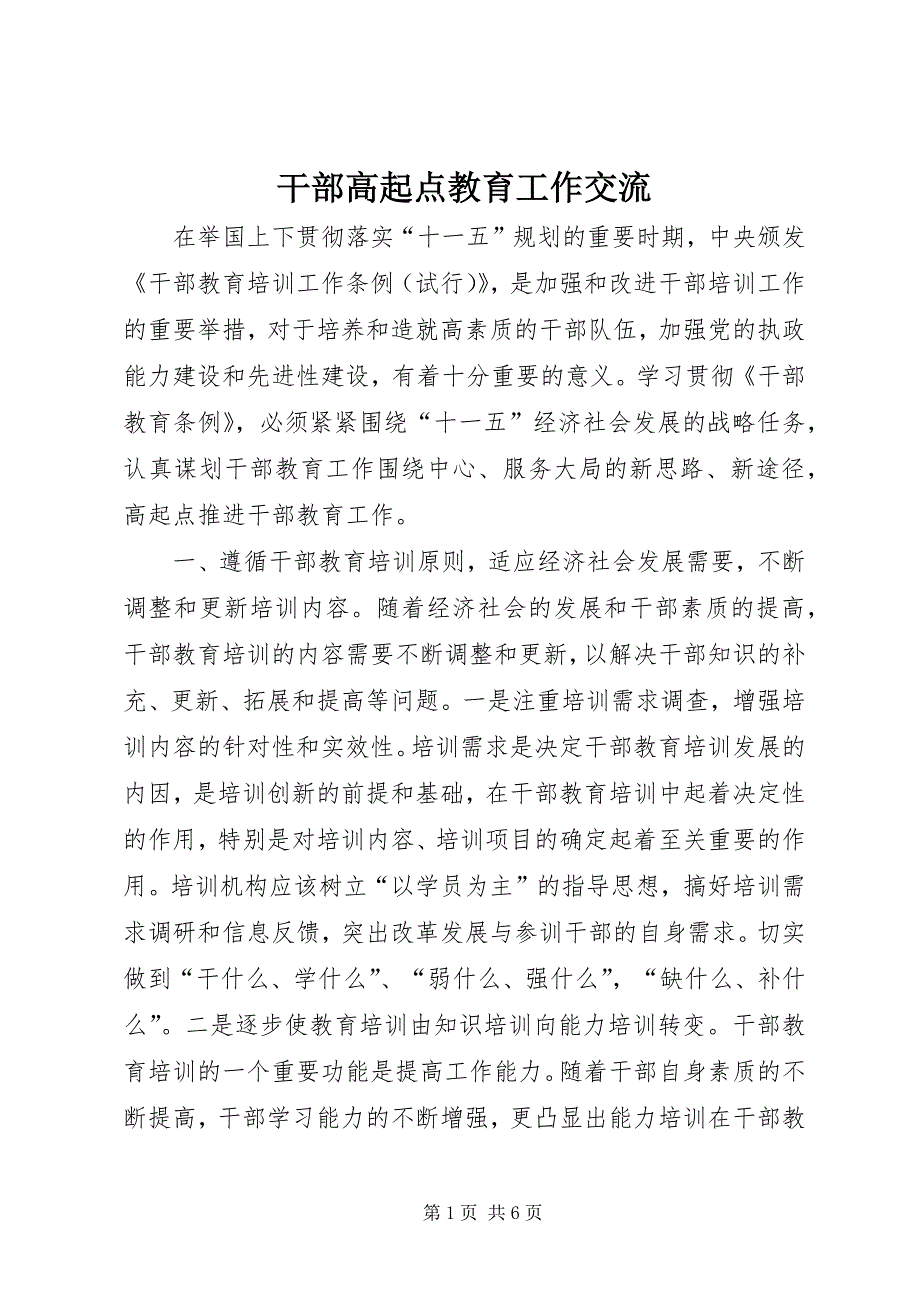 干部高起点教育工作交流
在举国上下贯彻落实“十一五”规划的重要时期，中央颁发
《干部教育培训工作条例（试行）》，是加强和改进干部培训工作
的重要举措，对于培养和造就高素质的干部队伍，加强党的执政
能力建设和先进性建设，有着十分重要的意义。学习贯彻《干部
教育条例》，必须紧紧围绕“十一五”经济社会发展的战略任务，
认真谋划干部教育工作围绕中心、服务大局的新思路、新途径，
高起点推进干部教育工作。
一、遵循干部教育培训原则，适应经济社会发展需要，不断
调整和更新培训内容。随着经济社会的发展和干部素质的提高，
干部教育培训的内容需要不断调整和更新，以解决干部知识的补
充、更新、拓展和提高等问题。一是注重培训需求调查，增强培
训内容的针对性和实效性。培训需求是决定干部教育培训发展的
内因，是培训创新的前提和基础，在干部教育培训中起着决定性
的作用，特别是对培训内容、培训项目的确定起着至关重要的作
用。培训机构应该树立“以学员为主”的指导思想，搞好培训需
求调研和信息反馈，突出改革发展与参训干部的自身需求。切实
做到“干什么、学什么”、“弱什么、强什么”，“缺什么、补什
么”。二是逐步使教育培训由知识培训向能力培训转变。干部教
育培训的一个重要功能是提高工作能力。随着干部自身素质的不
断提高，干部学习能力的不断增强，更凸显出能力培训在干部教
第 1 页 共 6 页